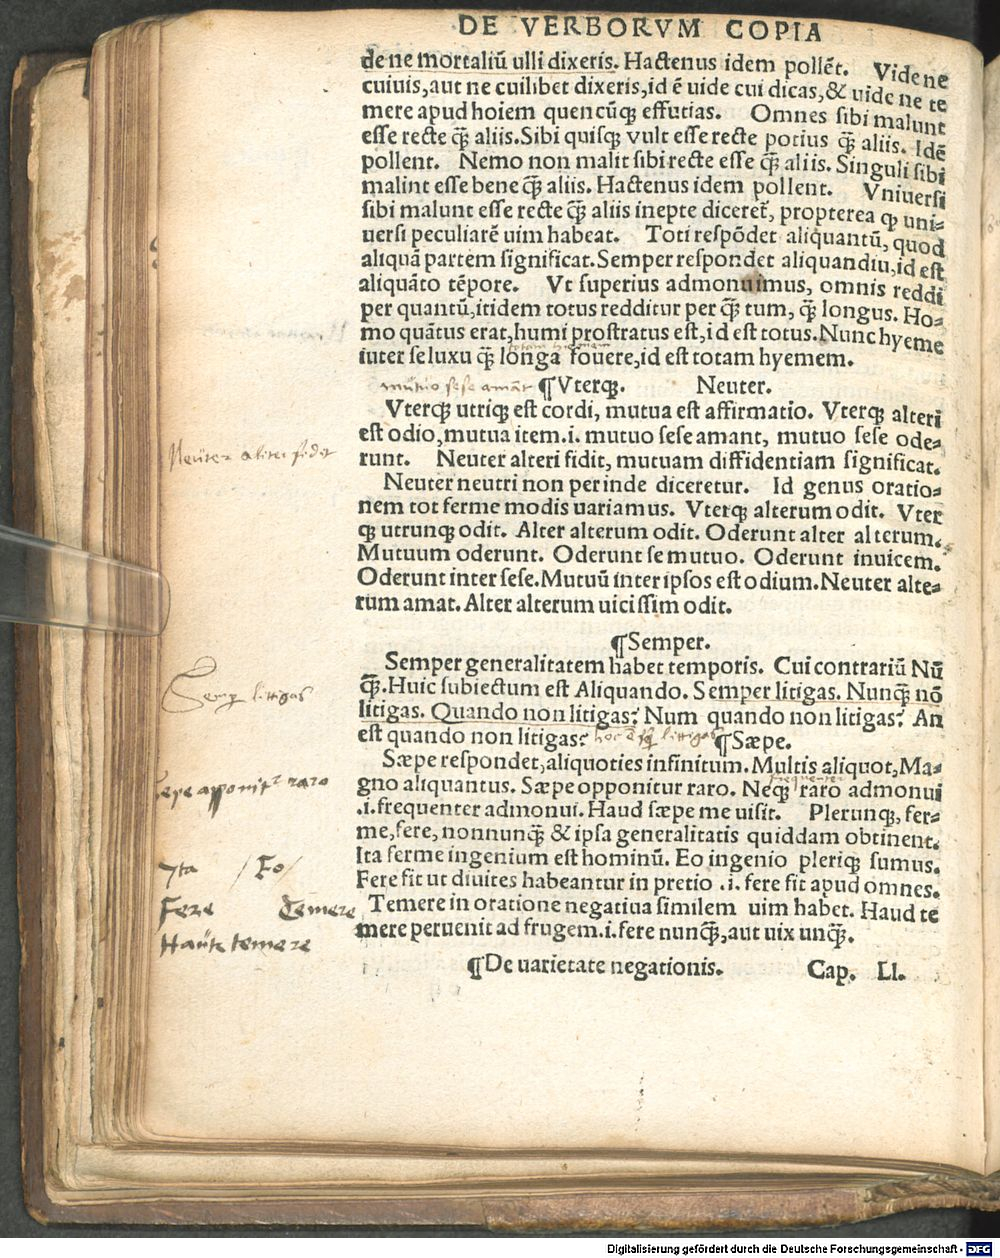 DE VERBORVM COPIA
de ne mortaliū ulli dixeris. Hactenus idem pollēt. Vide ne
cuiuis, aut ne cuilibet dixeris, id ē uide cui dicas, & uide ne te
mere apud hoiem quencūꝗ effutias. Omnes sibi malunt
esse recte ꝗ̄ aliis. Sibi quisꝗ vult esse recte potius ꝗ̄ aliis. Idē
pollent. Nemo non malit sibi recte esse ꝗ̄ aliis. Singuli sibi
malint esse bene ꝗ̄ aliis. Hactenus idem pollent. Vniuersi
sibi malunt esse recte ꝗ̄ aliis inepte diceret̄, propterea ꝙ uni-
uersi peculiarē uim habeat. Toti respōdet aliquantū, quod
aliquā partem significat. Semper respondet aliquandiu, id est
aliquāto tēpore. Vt superius admonuimus, omnis reddi
per quantū, itidem totus redditur per ꝗ̄ tum, ꝗ̄ longus. Ho-
mo quātus erat, humi prostratus est, id est totus. Nunc hyeme
totam hiemem
inter se luxu ꝗ̄ longa fouere, id est totam hyemem.
mutuo sese amāt ¶Vterꝗ. Neuter.
Vterꝗ utriꝗ est cordi, mutua est affirmatio. Vterꝗ alteri
est odio, mutua item .i. mutuo sese amant, mutuo sese ode-
Neuter alteri fidit
runt. Neuter alteri fidit, mutuam diffidentiam significat.
Neuter neutri non perinde diceretur. Id genus oratio-
nem tot ferme modis uariamus. Vterꝗ alterum odit. Vter
ꝗ utrunꝗ odit. Alter alterum odit. Oderunt alter alterum.
Mutuum oderunt. Oderunt se mutuo. Oderunt inuicem.
Oderunt inter sese. Mutuū inter ipsos est odium. Neuter alte-
rum amat. Alter alterum uicissim odit.
¶Semper.
Semper generalitatem habet temporis. Cui contrariū Nū
ꝗ̄. Huic subiectum est Aliquando. Semper litigas. Nunꝗ̄ nō
Semp litigas
litigas. Quando non litigas? Num quando non litigas? An
est quando non litigas? hoc ē litigas ¶Sæpe.
Sæpe respondet, aliquoties infinitum. Multis aliquot, Ma-
frequenter
Sepe opponit raro
gno aliquantus. Sæpe opponitur raro. Neꝗ raro admonui
.i. frequenter admonui. Haud sæpe me uisit. Plerunꝗ, fer-
me, fere, nonnunꝗ̄ & ipsa generalitatis quiddam obtinent.
Yta / Eo /
Ita ferme ingenium est hominū. Eo ingenio pleriꝗ sumus.
Fere fit ut diuites habeantur in pretio .i. fere fit apud omnes.
Fere Temere
Temere in oratione negatiua similem uim habet. Haud te
Haūt temere
mere peruenit ad frugem .i. fere nunꝗ̄, aut uix unꝗ̄.
¶De uarietate negationis. Cap. LI.
Digitalisierung gefördert durch die Deutsche Forschungsgemeinschaft - DFG